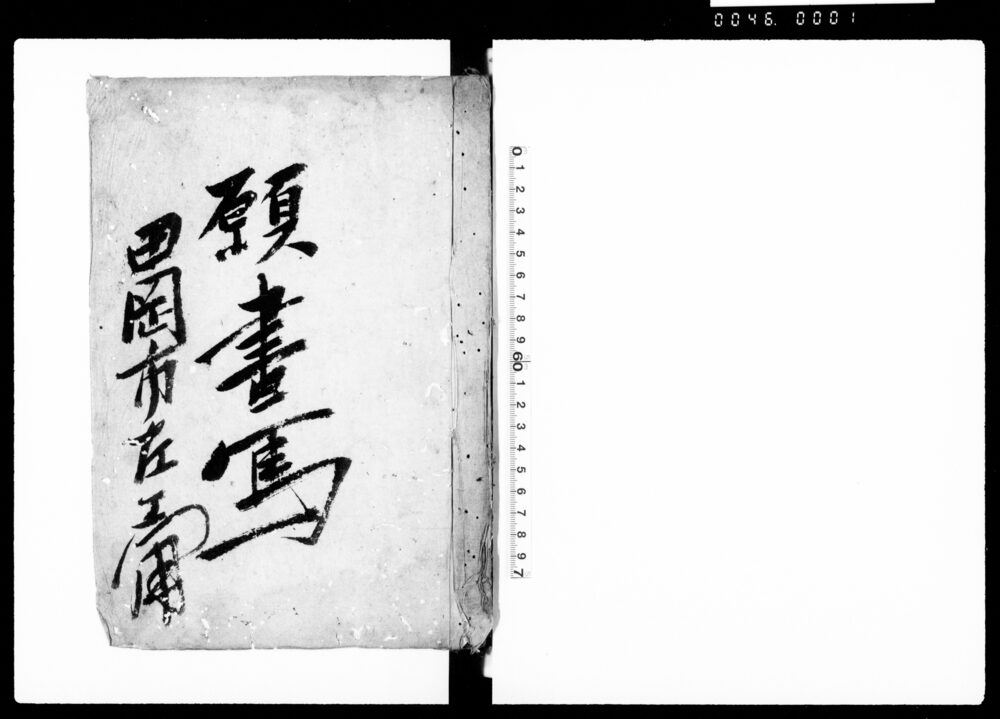 0046. 0001
願書写
田岡市左エ門
0 1 2 3 4 5 6 7 8 9 60 1 2 3 4 5 6 7 8 9 7